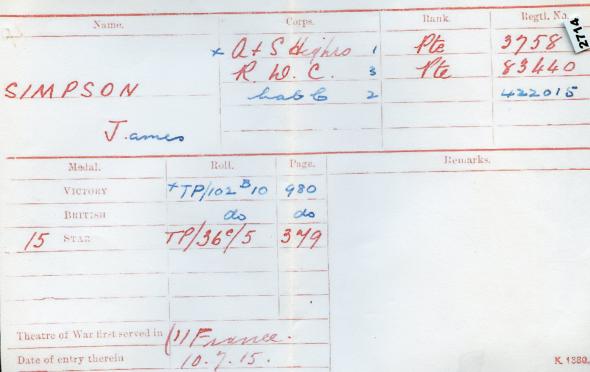 Name. Corps. Rank. Regtl. No.
23
2714
× A & S Highrs 1 Pte 3758
SIMPSON R. W. C. 3 Pte 83440
Lab C 2 422015
James
Medal. Roll. Page. Remarks.
VICTORY × TP/102 B 10 980
BRITISH do do
15 STAR TP/36c/5 379
Theatre of War first served in (1) France.
Date of entry therein 10.7.15.
K 1380.